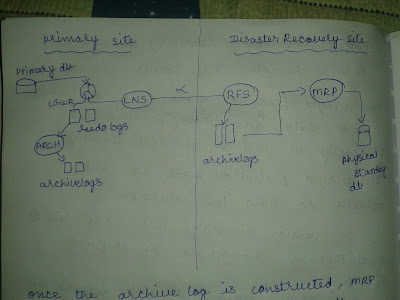 primary site
Disaster Recovery site
primary db
LGWR
LNS
RFS
MRP
redologs
ARCH
archivelogs
archivelogs
physical
standby
db
once the archive log is constructed, MRP